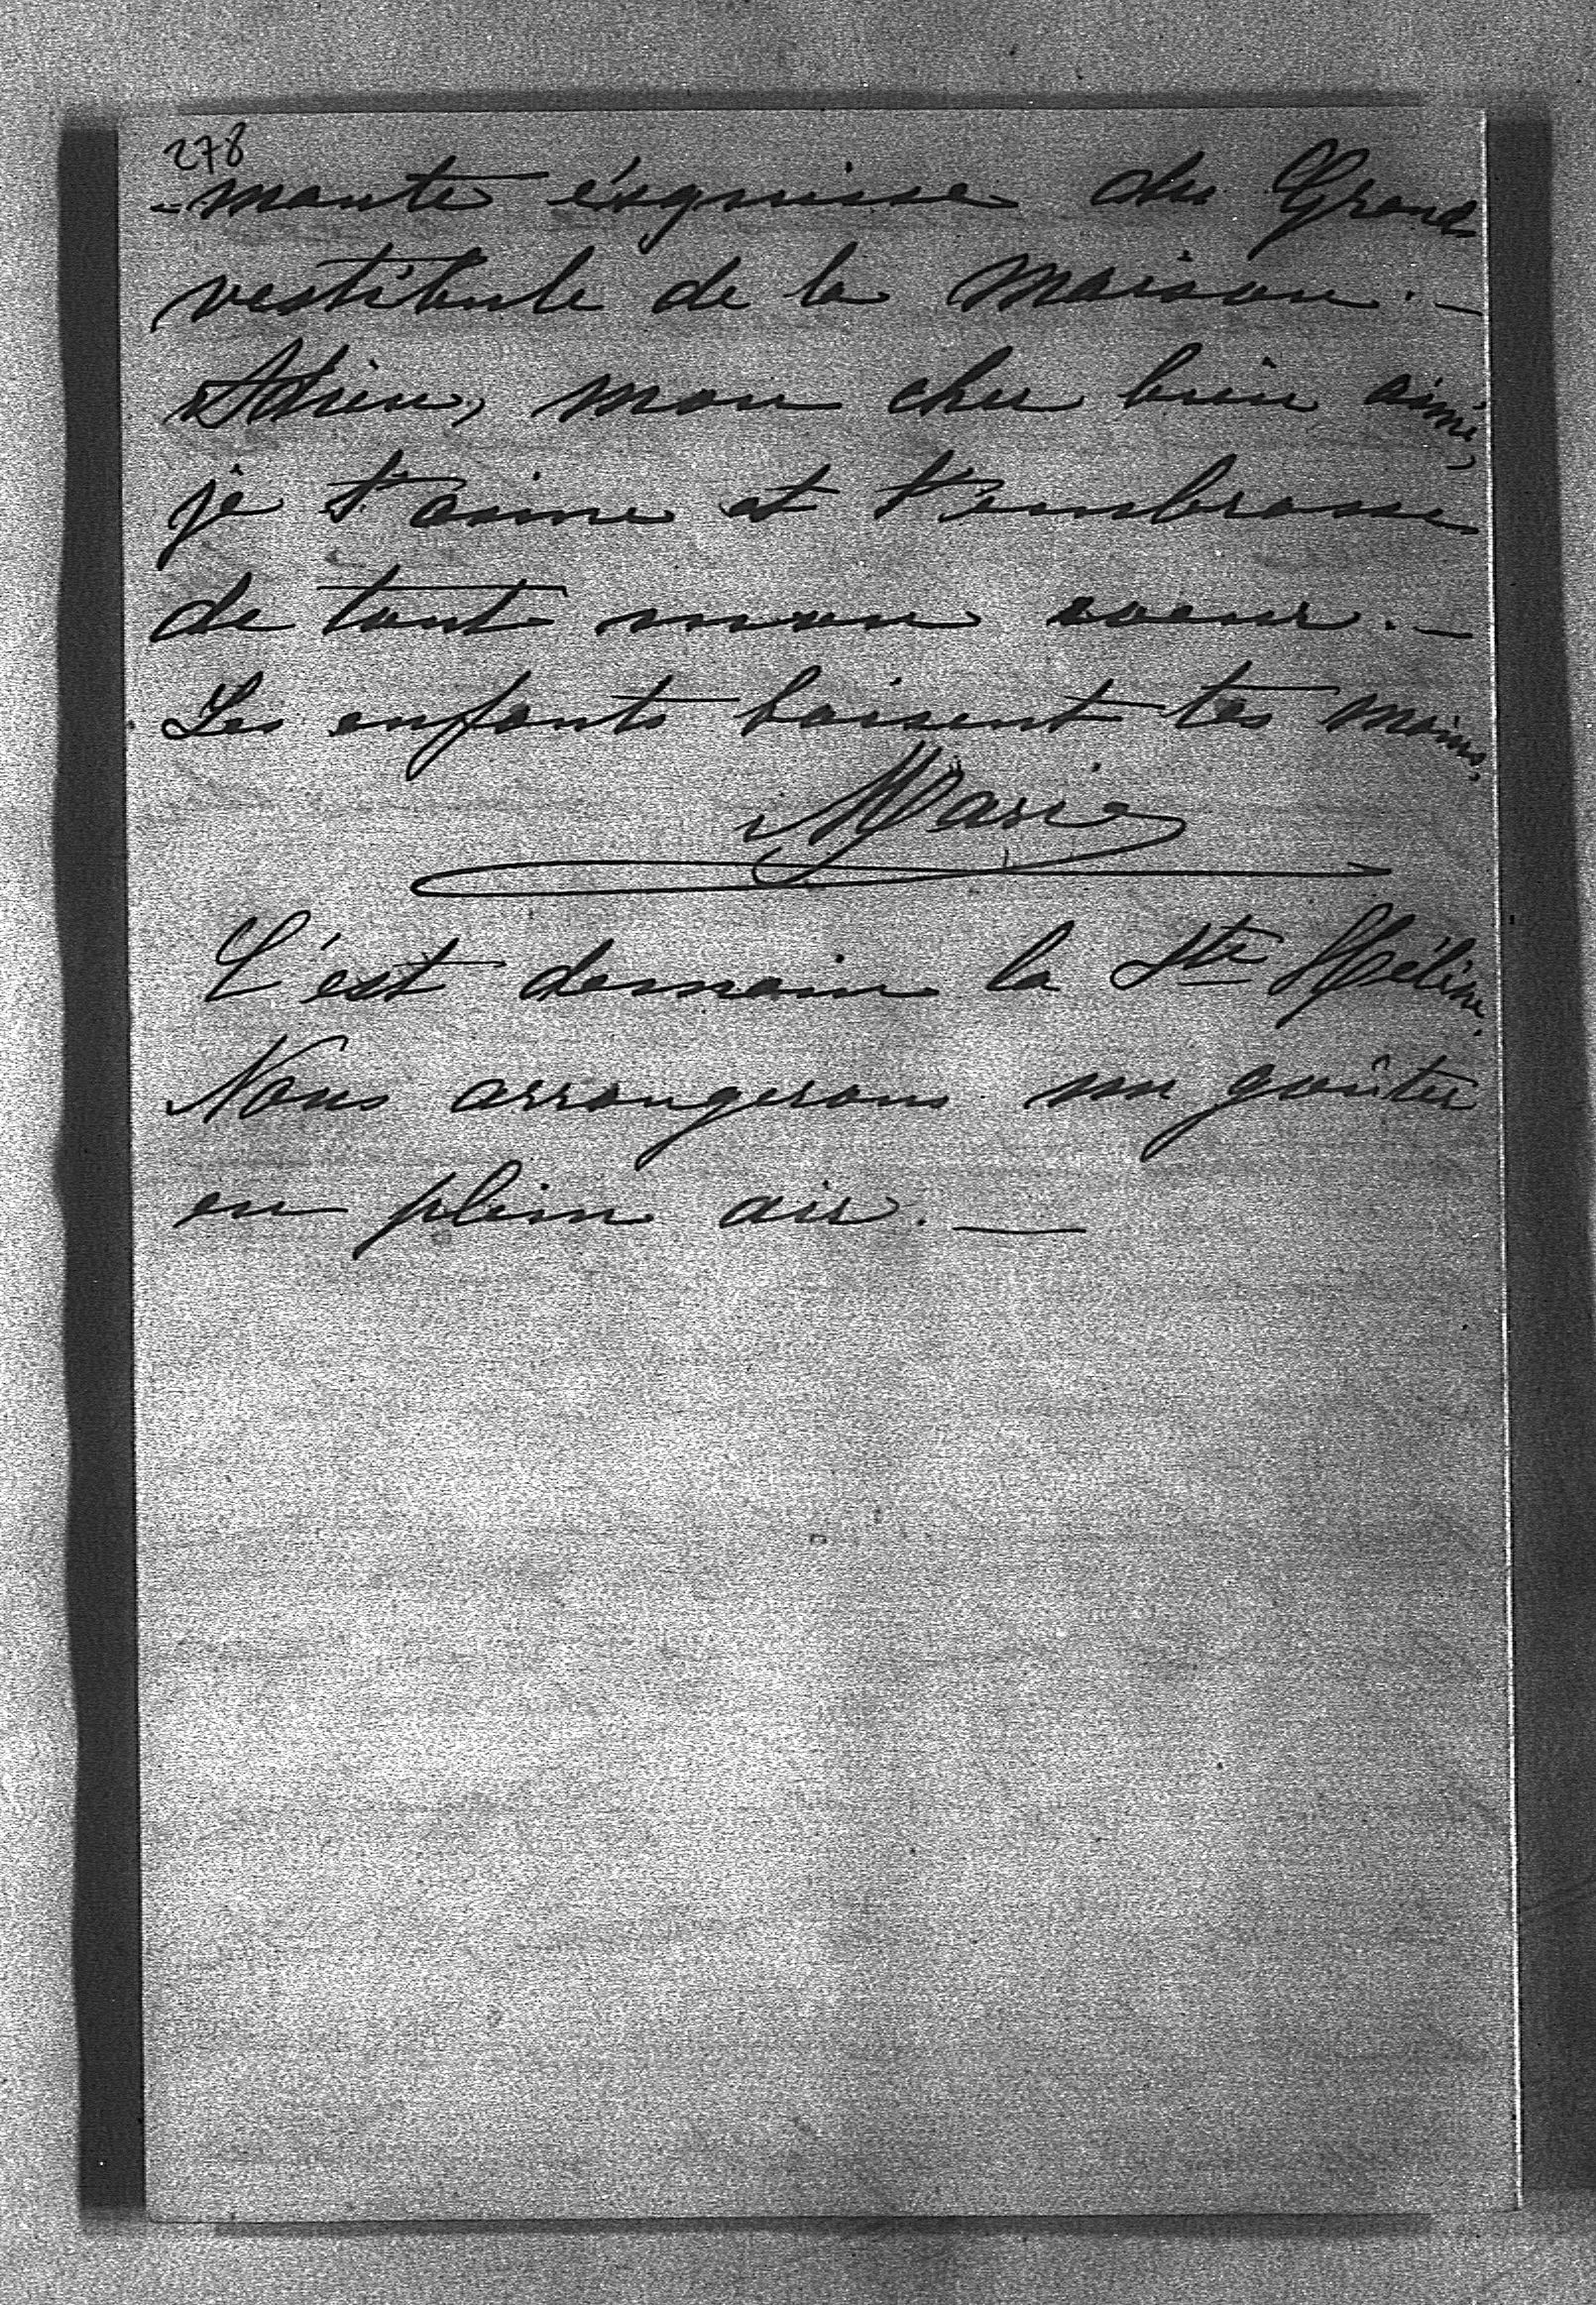 278
-mante ésquisse du Grand
vestibule de la Maison. —
Adieu, mon cher bien aimé,
je t'aime et t'embrasse
de tout mon coeur. —
Les enfants baisent tes mains.
Marie
C'est demain la Ste Hélène.
Nous arrangerons un goûter
en plein air. —